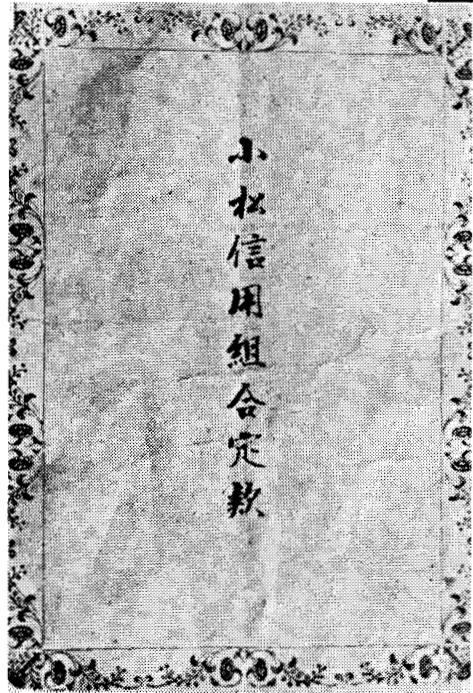 小松信用組合定款